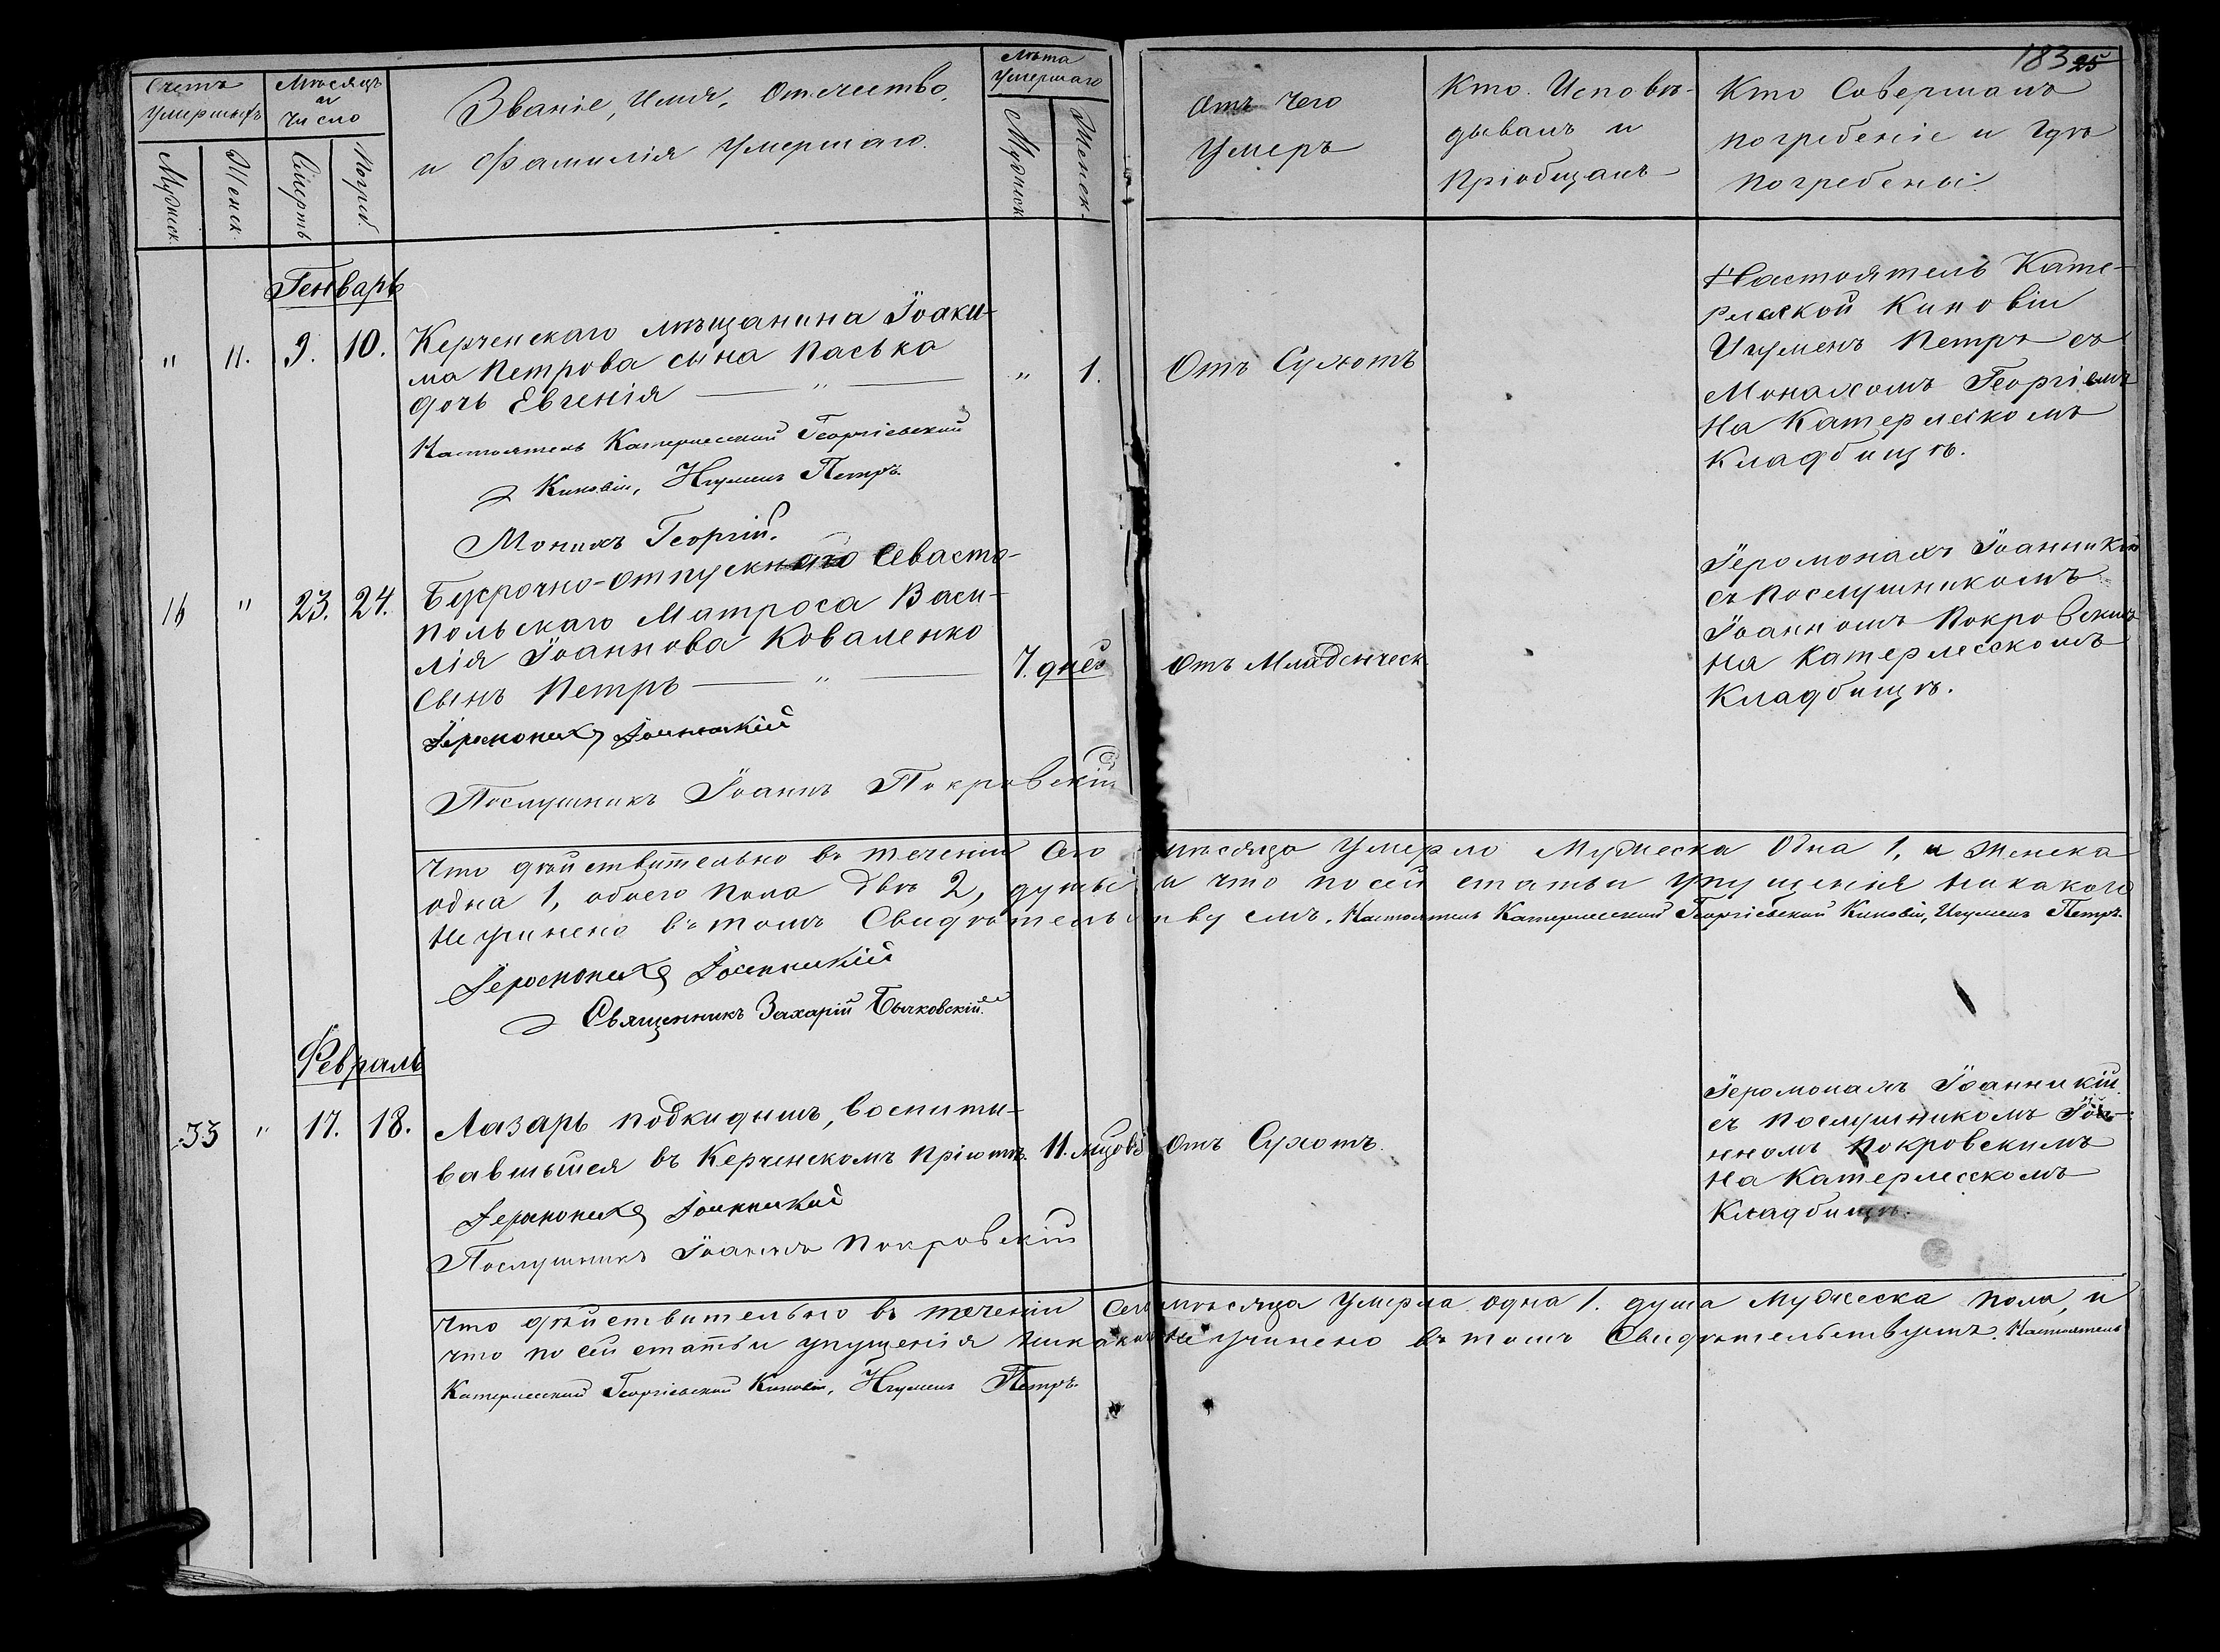 183 25
Счетъ
Умершихъ
Мѣсяцъ
и
Число
Званіе, Имя, Отечество,
и Фамилія Умершаго.
Лѣта
Умершаго
Мужеск.
Женск.
Смерть
Погреб.
Мужеск.
Женск.
Отъ Чего
Умеръ
Кто Исповѣ-
дывалъ и
Пріобщалъ
Кто Совершалъ
погребеніе и Гдѣ
погребены.
Генварь
" 11. 9. 10.
Керченскаго мѣщанина Іоаки-
ма Петрова сына Паська
дочь Евгенія — " —
" 1.
Отъ Сухотъ
Настоятель Кате-
рлеской Киновіи
Игуменъ Петръ съ
Монахомъ Георгіемъ
На Катерлескомъ
Кладбищѣ.
Настоятель Катерлесской Георгіевской
Киновіи, Игуменъ Петръ.
Монахъ Георгій.
16 " 23. 24.
Безсрочно-отпускнаго Севасто-
польскаго Матроса Васи-
лія Іоаннова Коваленко
Сынъ Петръ — " —
7. дней
Отъ Младенческ.
Іеромонахъ Іоанникій
съ послушникомъ
Іоанномъ Покровскимъ
На Катерлесскомъ
Кладбищѣ.
Іеромонахъ Іоанникій
Послушникъ Іоаннъ Покровскій
Что дѣйствительно въ теченіи Сего мѣсяца Умерло Мужеска Одна 1, и Женска
одна 1, обоего пола двѣ 2, душы и что по сей статьи упущенія никакого
не учинено въ томъ Свидѣтельствуемъ. Настоятель Катерлесской Георгіевской Киновіи, Игуменъ Петръ.
Іеромонахъ Іоанникій
Священникъ Захарій Бычковскій.
Февраль
33 " 17. 18.
Лазарь подкидышъ, воспиты-
вавшыйся въ Керченскомъ пріютѣ.
11. мцовъ
Отъ Сухотъ.
Іеромонахъ Іоанникій
съ послушникомъ Іоа-
нномъ Покровскимъ
На Катерлесскомъ
Кладбищѣ.
Іеромонахъ Іоанникій
Послушникъ Іоаннъ Покровскій
Что дѣйствительно въ теченіи Сего мѣсяца Умерла одна 1. душа Мужеска пола, и
что по сей статьи упущенія никакого не учинено въ томъ Свидѣтельствуемъ. Настоятель
Катерлесской Георгіевской Киновіи, Игуменъ Петръ.